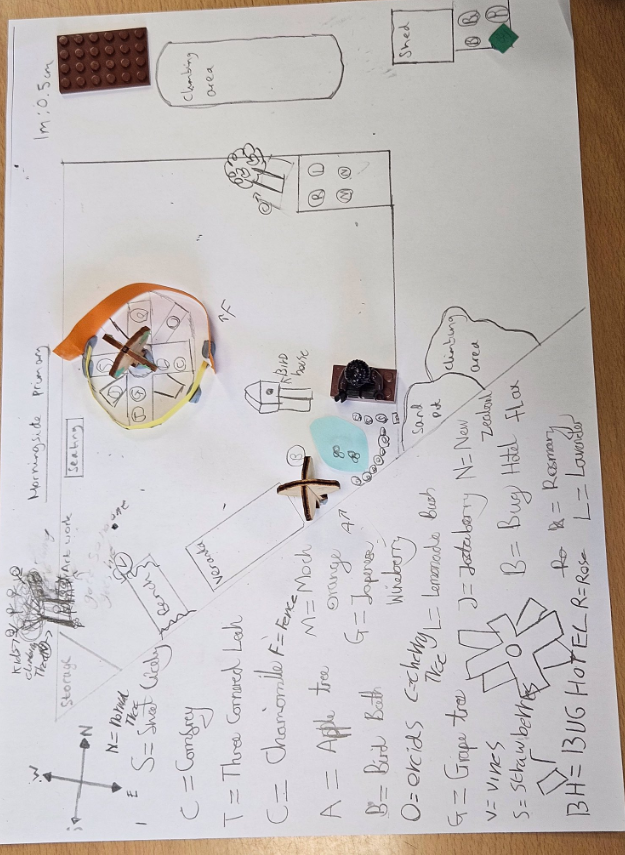 1m:0.5cm
Climbing
area
Shed
R
R
Morningside Primary
Seating
Art work
Storage
W
N
E
Porch
Veranda
BIRD
house
B
F
R
L
N
N
Sand
Pit
Climbing
area
N=Normal
Tree
S=Sweet Cicely
C=Comfrey
T=Three Cornered Leek
C=Chamomille F=Fence
A=Apple tree
M=Moch
orange
B=Bird Bath
G=Japenese
Wineberry
O=orcids C=cherry
Tree
L=Lemonade Bush
G=Grape tree
J=Jostaberry
N=New
Zealand
Flax
V=vines
S=Strawberries
B=Bug Hotel
BH=BUG HOTEL
R=Rose
R=Rosmary
L=Lavender